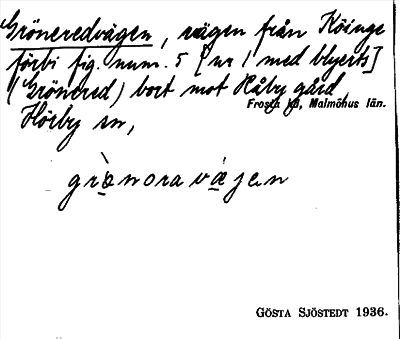 Gröneredvägen, vägen från Köinge
förbi fig. num. 5 [nr 1 med blyerts]
(Grönered) bort mot Råby gård,
Frosta hd, Malmöhus län.
Hörby sn,
grὰnoravǽjen
GÖSTA SJÖSTEDT 1936.